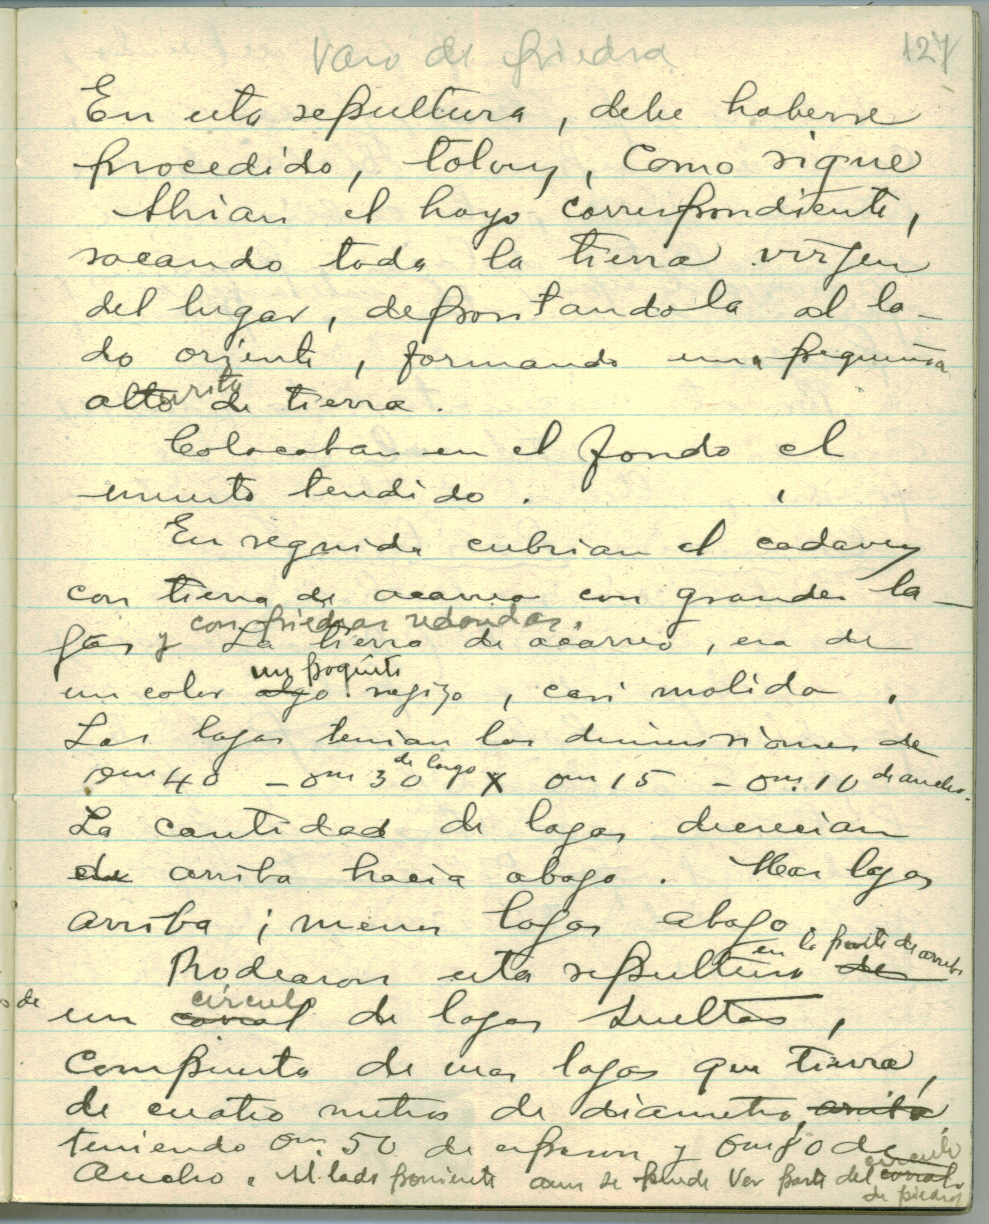 Vaso de piedra
127
En esta sepultura, debe haberse
procedido, talvez, como sigue
Abrian el hoyo correspondiente,
sacando toda la tierra virjen
del lugar, depositandola al la-
do oriente, formando una pequeña
alturita de tierra.
Colocaban en el fondo el
muerto tendido.
En seguida cubrian el cadaver
con tierra de acarreo con grandes la-
jas y con piedras redondas.
La tierra de acarreo, era de
un color algo un poquito rojizo, casi molida.
Las lajas tenian las dimensiones de
0m 40 - 0m 30 de largo X 0m 15 - 0m. 10 de ancho.
La cantidad de lajas decrecian
de arriba hacia abajo. Mas lajas
arriba; menos lajas abajo
Rodearon esta sepultura en la parte de arriba de
de
un corral circulo de lajas sueltas,
compuesta de mas lajas que tierra,
de cuatro metros de diametro, arriba
teniendo 0m. 50 de espesor y de
ancho. Al lado poniente aun se puede ver parte del corral circulo
de piedras